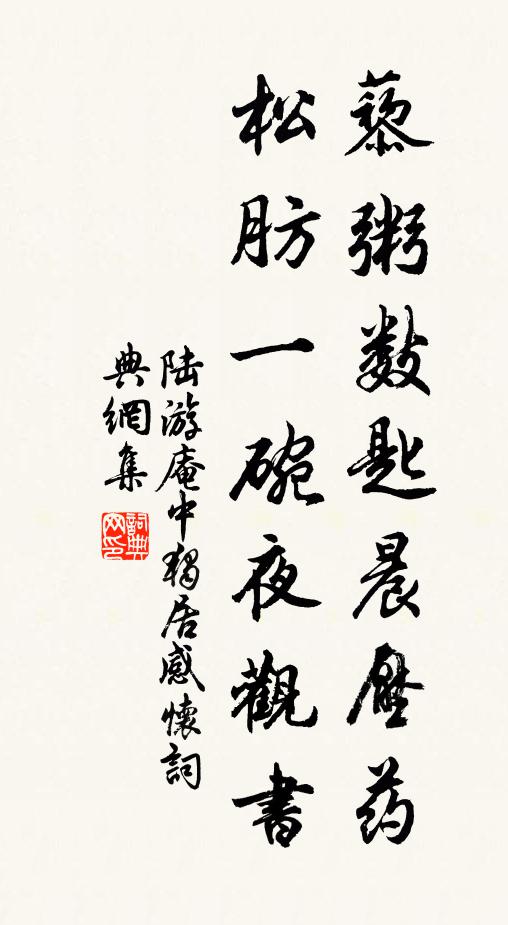 藜粥數匙晨壓药
松肪一碗夜觀書
陆游庵中獨居感懷詞
典網集
詞典網印